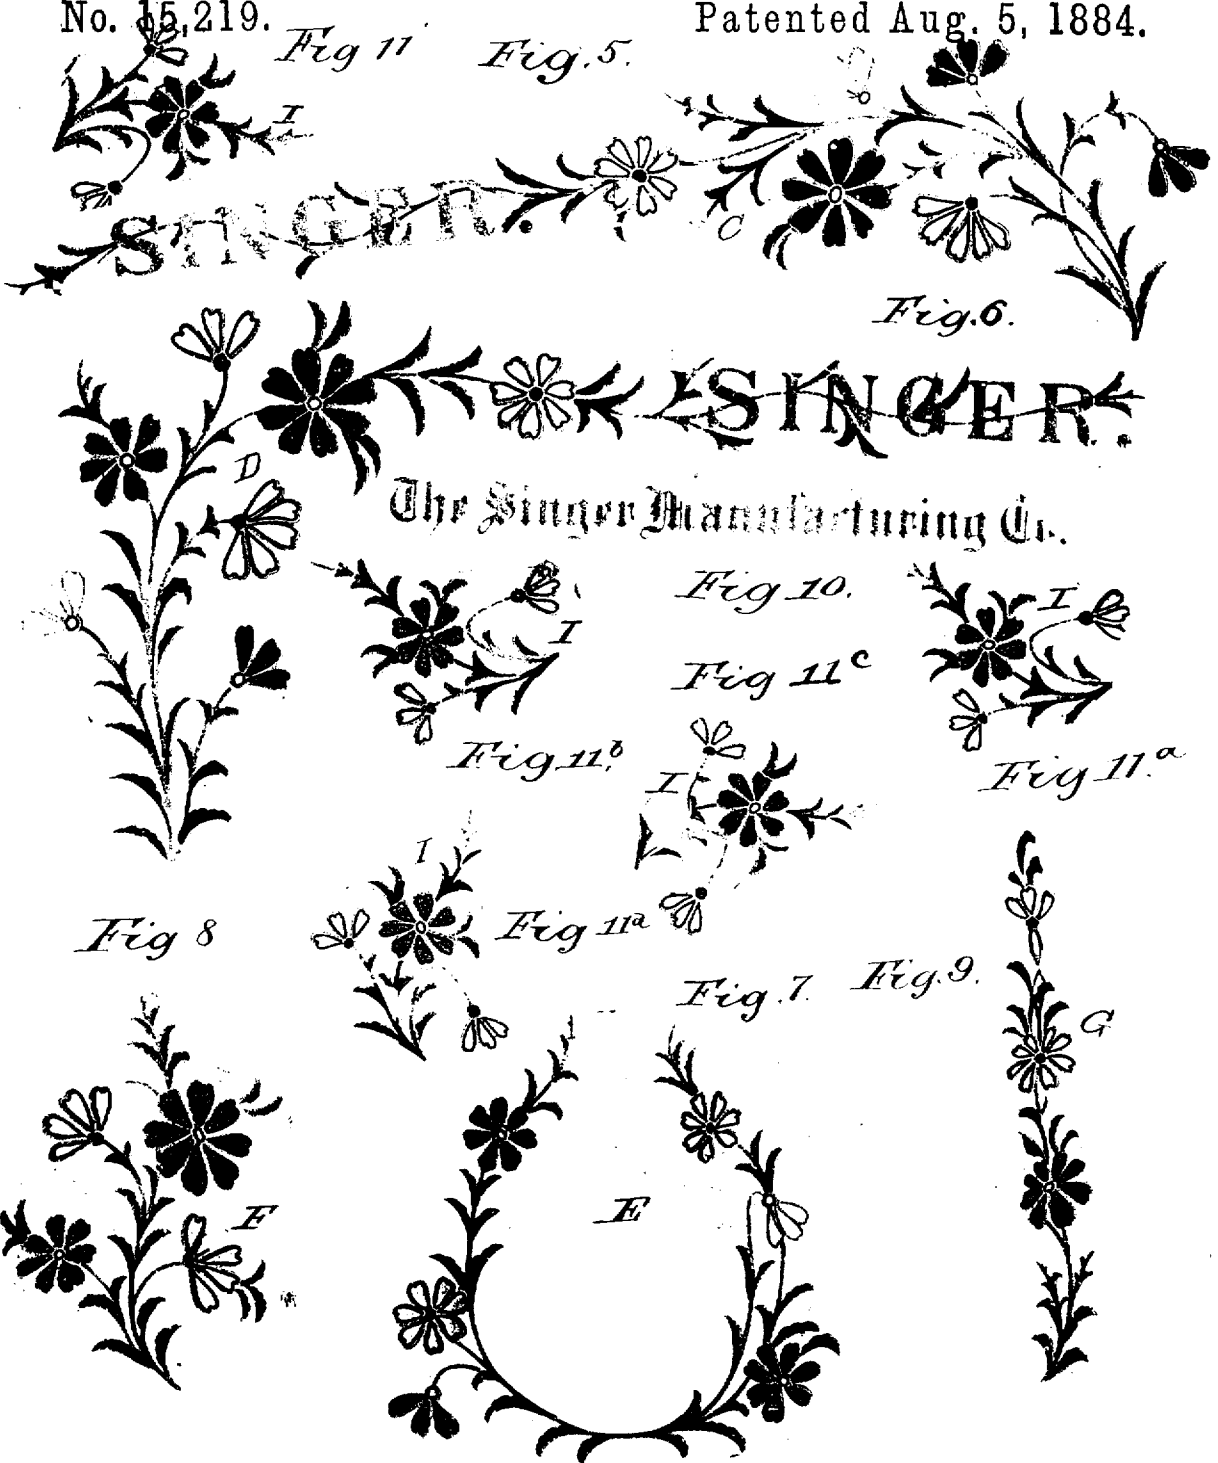 No. 15,219. Patented Aug. 5, 1884.
Fig 11 Fig. 5.
I
SINGER.
C
Fig. 6.
SINGER.
D
The Singer Manufacturing Co.
Fig 10.
I
I
Fig 11c
Fig. 11b
I
Fig 11.a
I
Fig 8
Fig 11a
Fig. 7.
Fig. 9.
G
F
E